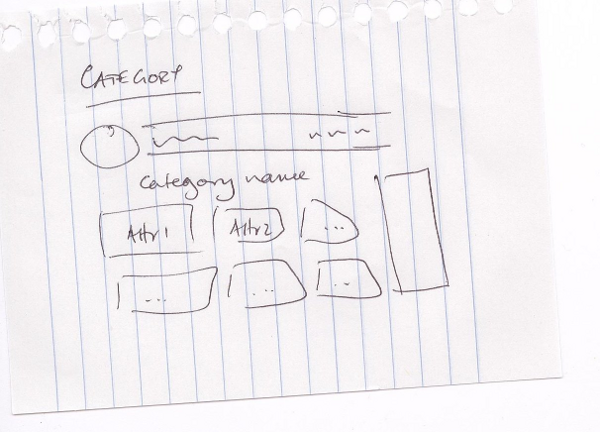 CATEGORY
Category name
Attr1 Attr2 ...
... ... ..